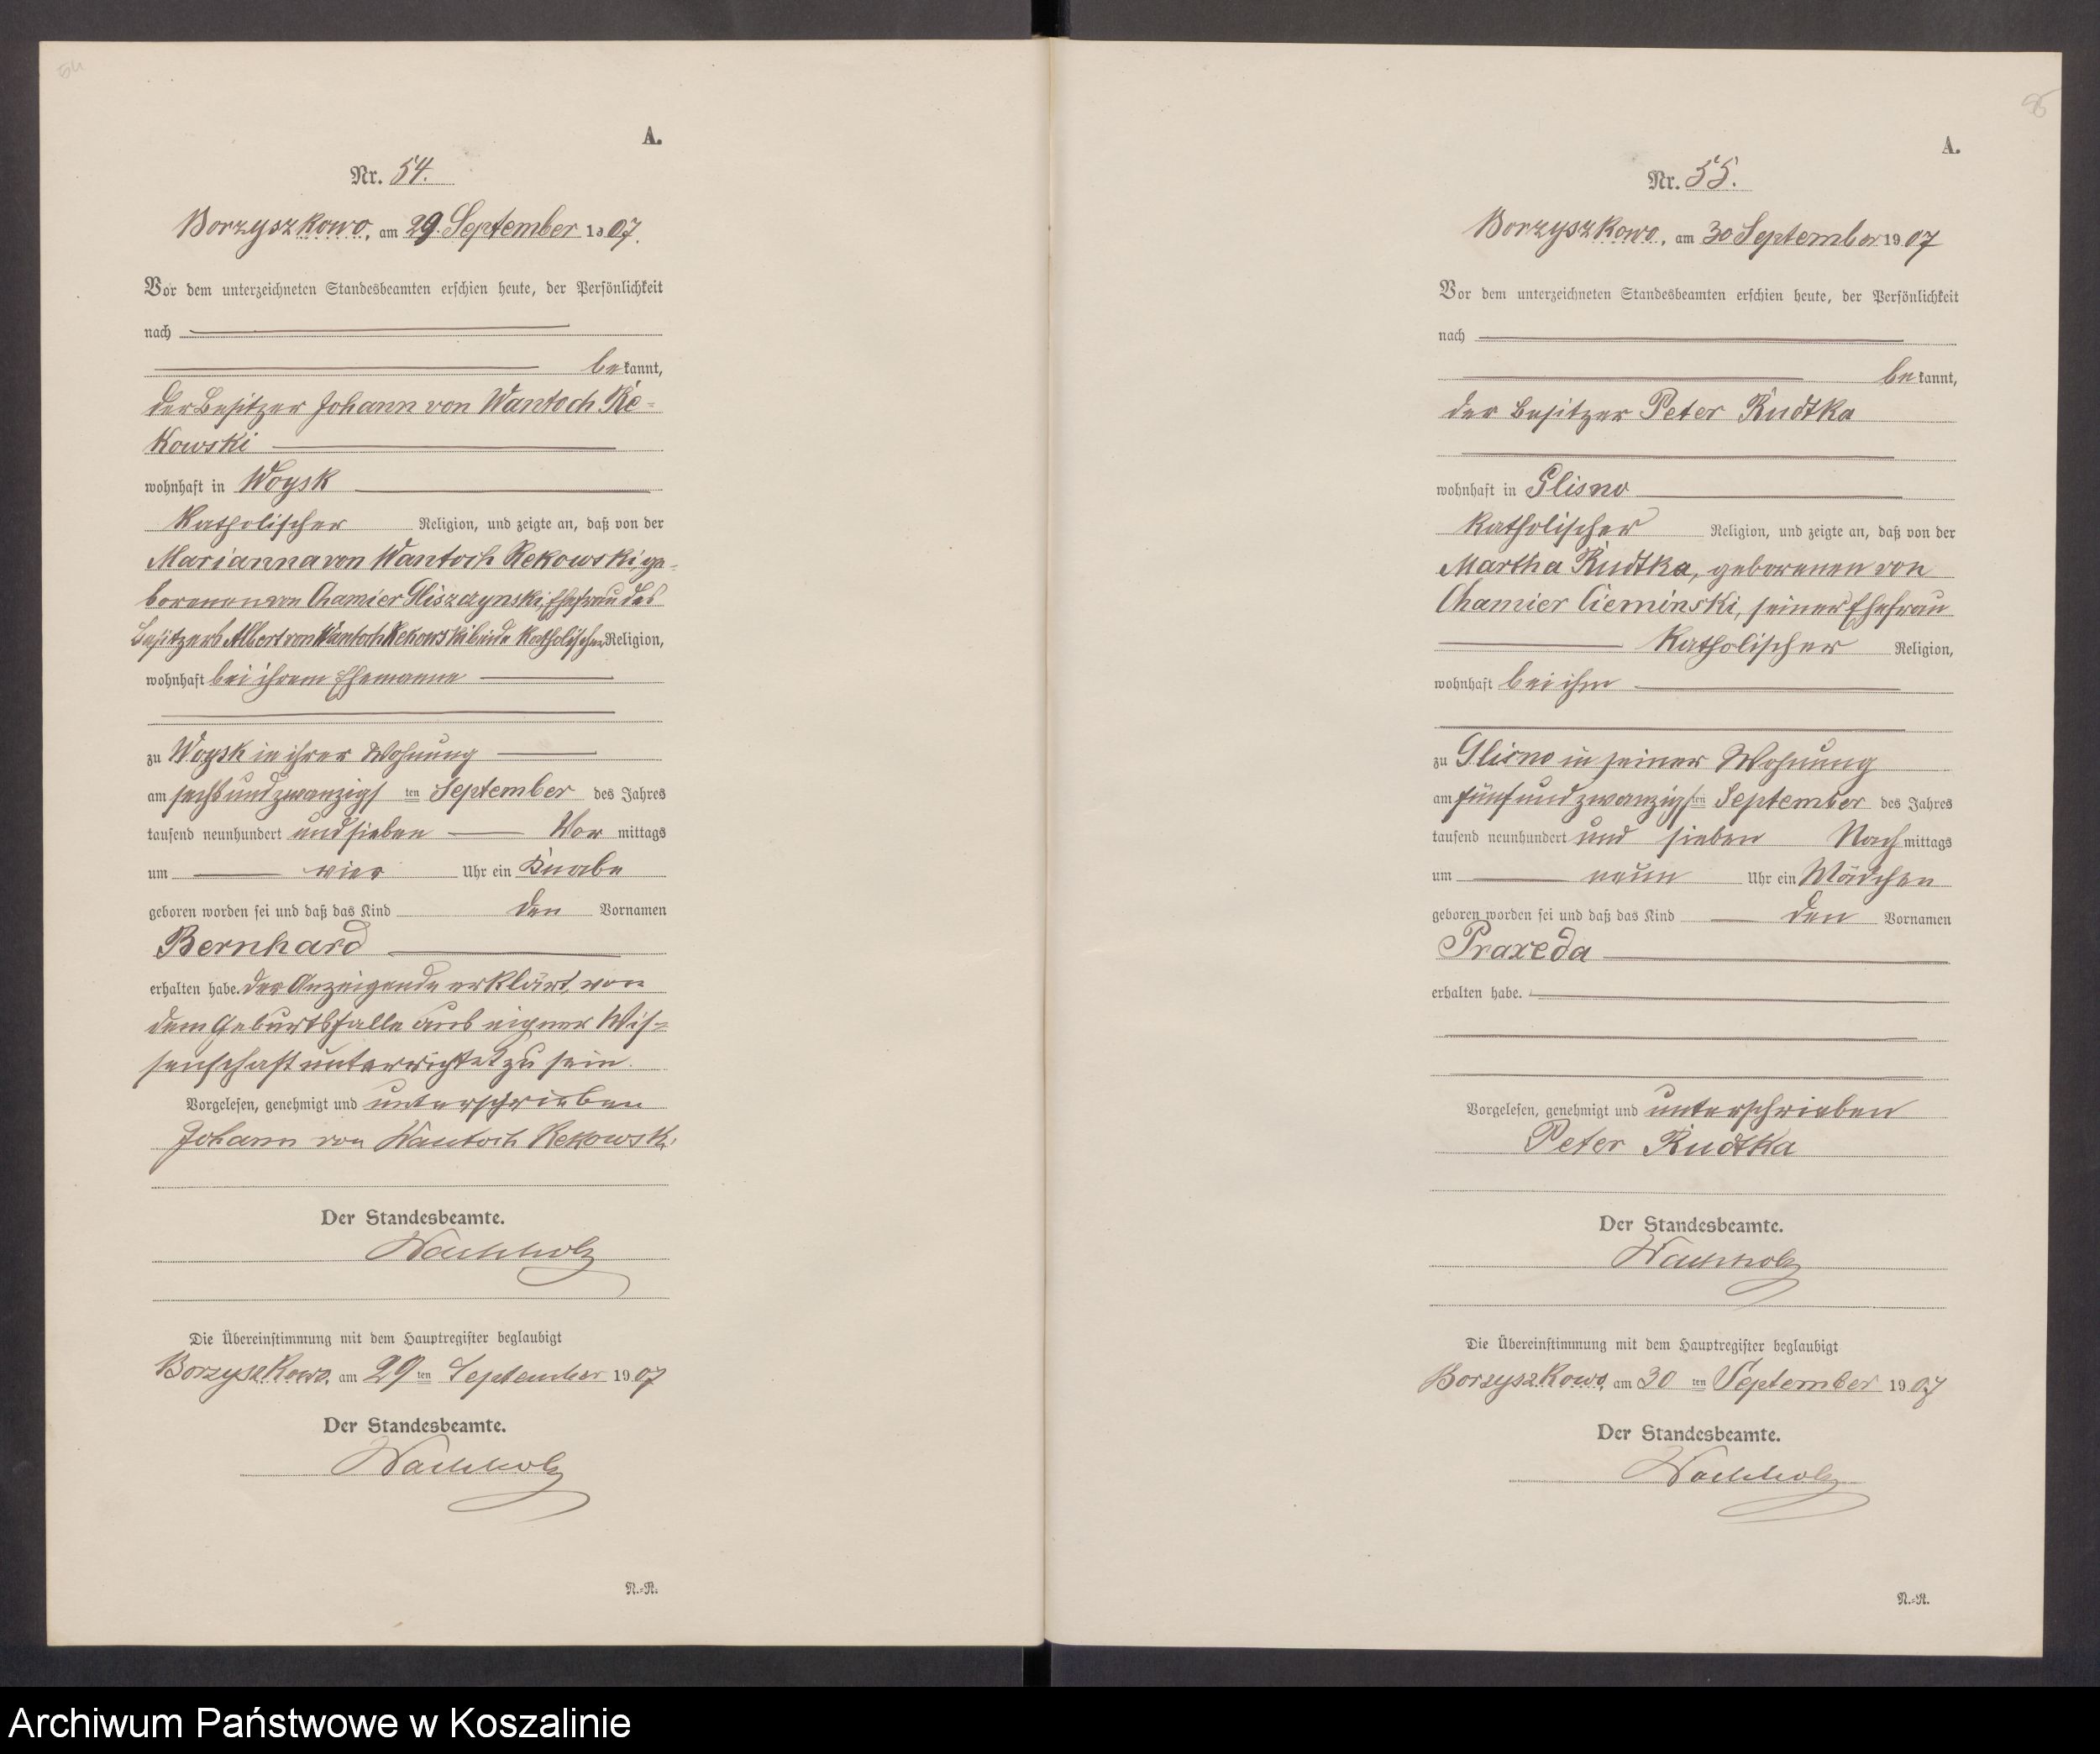 54
A.
Nr. 54.
Borzyszkowo, am 29. September 1907.
Vor dem unterzeichneten Standesbeamten erschien heute, der Persönlichkeit
nach
bekannt,
der Besitzer Johann von Wantoch Re-
kowski
wohnhaft in Woysk
katholischer Religion, und zeigte an, daß von der
Marianna von Wantoch Rekowski, ge-
borenen von Chamier Gliszczynski, Ehefrau des
Besitzers Albert von Wantoch Rekowski beide katholischer Religion,
wohnhaft bei ihrem Ehemanne
zu Woysk in ihrer Wohnung
am sechsundzwanzigsten September des Jahres
tausend neunhundert und sieben Vormittags
um vier Uhr ein Knabe
geboren worden sei und daß das Kind den Vornamen
Bernhard
erhalten habe. Der Anzeigende erklärt, von
dem Geburtsfalle aus eigner Wis-
senschaft unterrichtet zu sein.
Vorgelesen, genehmigt und unterschrieben
Johann von Wantoch Rekowski
Der Standesbeamte.
Wachholz
Die Übereinstimmung mit dem Hauptregister beglaubigt
Borzyszkowo, am 29ten September 1907
Der Standesbeamte.
Wachholz
N.=R.
A.
Nr. 55.
Borzyszkowo, am 30 September 1907
Vor dem unterzeichneten Standesbeamten erschien heute, der Persönlichkeit
nach
bekannt,
der Besitzer Peter Rudtka
wohnhaft in Glisno
katholischer Religion, und zeigte an, daß von der
Martha Rudtka, geborenen von
Chamier Cieminski, seiner Ehefrau
katholischer Religion,
wohnhaft bei ihm
zu Glisno in seiner Wohnung
am fünfundzwanzigsten September des Jahres
tausend neunhundert und sieben Nachmittags
um neun Uhr ein Mädchen
geboren worden sei und daß das Kind den Vornamen
Praxeda
erhalten habe.
Vorgelesen, genehmigt und unterschrieben
Peter Rudtka
Der Standesbeamte.
Wachholz
Die Übereinstimmung mit dem Hauptregister beglaubigt
Borzyszkowo, am 30ten September 1907
Der Standesbeamte.
Wachholz
N.=R.
Archiwum Państwowe w Koszalinie